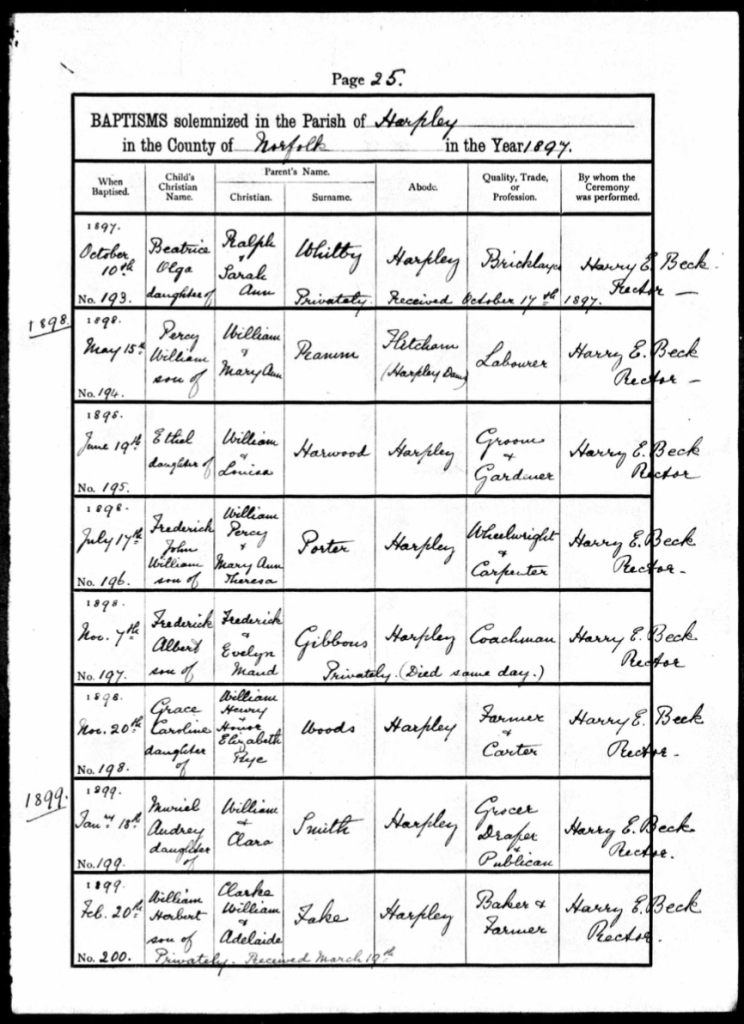 Page 25.
BAPTISMS solemnized in the Parish of Harpley
in the County of Norfolk in the Year 1897.
When Baptised. Child's Christian Name. Parent's Name. Christian. Surname. Abode. Quality, Trade, or Profession. By whom the Ceremony was performed.
1897.
October 10th
No. 193.
Beatrice
Olga
daughter of
Ralph
&
Sarah
Ann
Whitby
Harpley
Bricklayer
Harry E. Beck.
Rector —
Privately. Received October 17th 1897.
1898.
1898.
May 15th
No. 194.
Percy
William
son of
William
&
Mary Ann
Flitcham
(Harpley Dam)
Labourer
Harry E. Beck
Rector —
1898.
June 19th
No. 195.
Ethel
daughter of
William
&
Louisa
Harwood
Harpley
Groom
&
Gardiner
Harry E. Beck
Rector
1898.
July 17th
No. 196.
Frederick
John
William
son of
William
Percy
&
Mary Ann
Theresa
Porter
Harpley
Wheelwright
&
Carpenter
Harry E. Beck
Rector —
1898.
Nov. 7th
No. 197.
Frederick
Albert
son of
Frederick
&
Evelyn
Maud
Gibbons
Harpley
Coachman
Harry E. Beck
Rector
Privately. (Died same day.)
1898.
Nov. 20th
No. 198.
Grace
Caroline
daughter
of
William
Henry
&
Honor
Elizabeth
Pye
Woods
Harpley
Farmer
&
Carter
Harry E. Beck
Rector —
1899.
1899.
Jany 18th
No. 199.
Muriel
Audrey
daughter
of
William
&
Clara
Smith
Harpley
Grocer
Draper
&
Publican
Harry E. Beck
Rector.
1899
Feb. 20th
No. 200.
William
Herbert
son of
Clarke
William
&
Adelaide
Fake
Harpley
Baker &
Farmer
Harry E. Beck
Rector.
Privately. Received March 19th